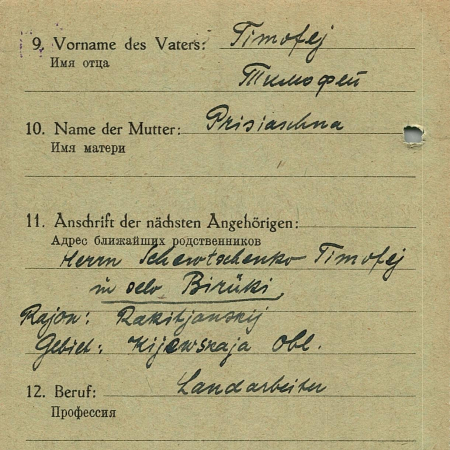 9. Vorname des Vaters: Timofej
Имя отца
Тимофей
10. Name der Mutter: Prisiaschna
Имя матери
11. Anschrift der nächsten Angehörigen:
Адрес ближайших родственников
Herrn Schewtschenko Timofej
in selo Birüki
Rajon: Rakitjanskij
Gebiet: Kijewskaja Obl.
12. Beruf: Landarbeiter
Профессия